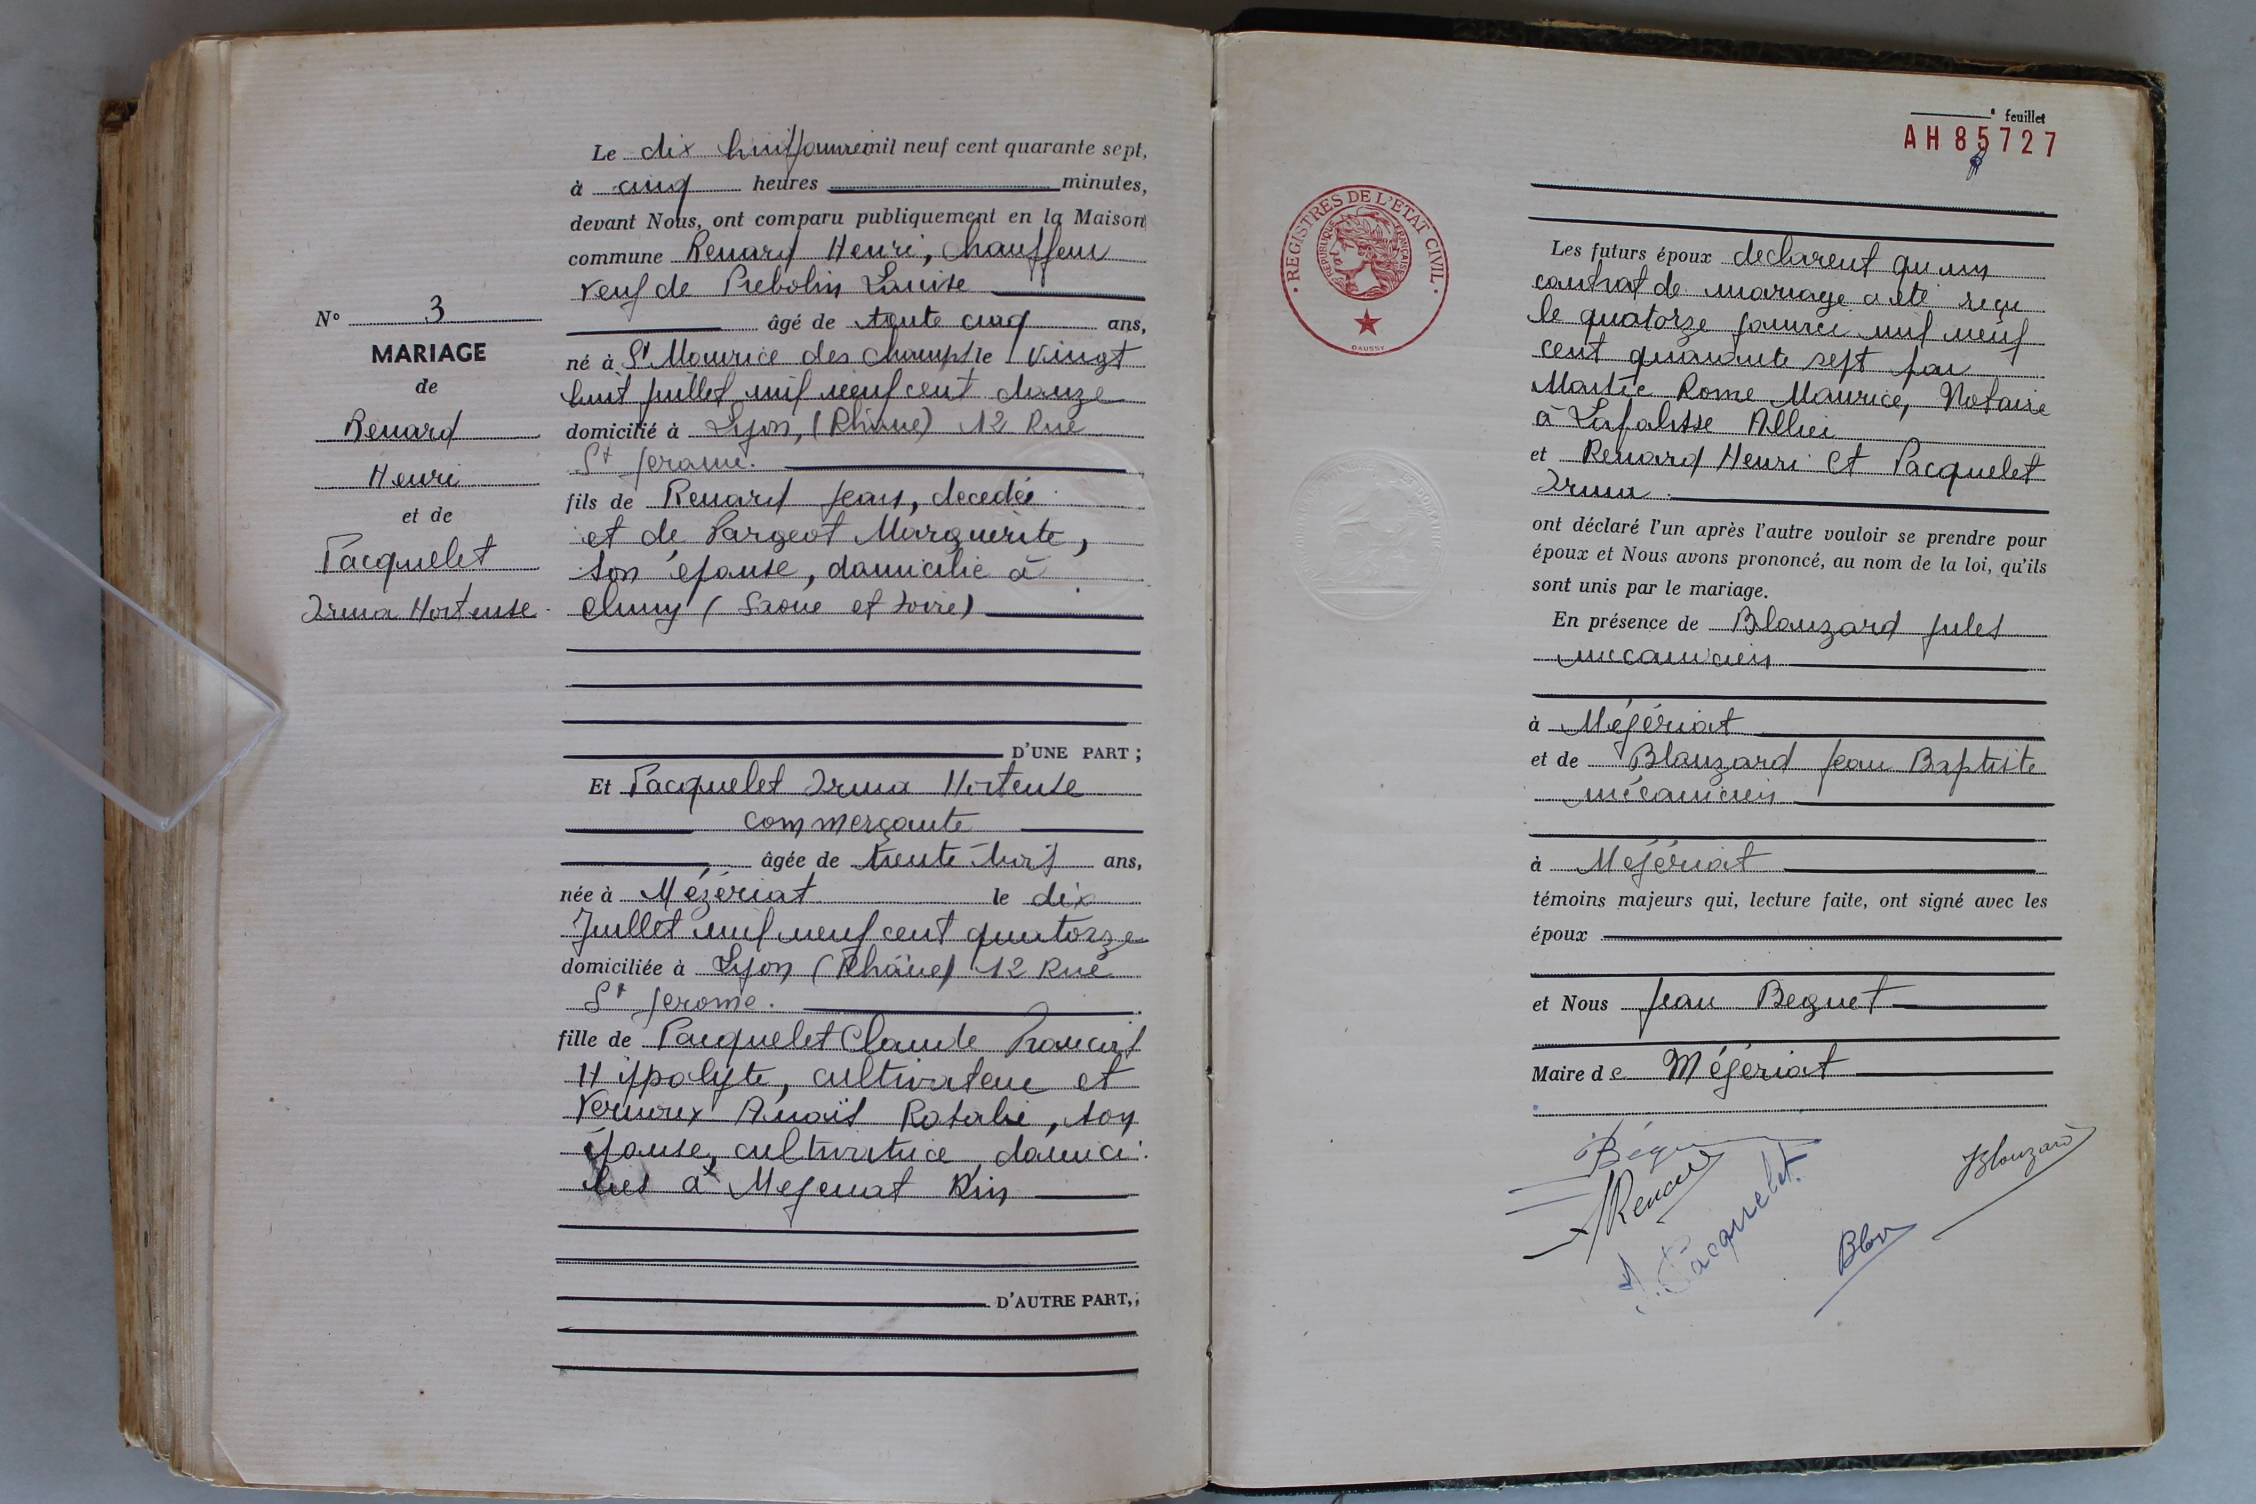 Le dix huit janvier mil neuf cent quarante sept,
à cinq heures minutes,
devant Nous, ont comparu publiquement en la Maison
commune Renard Henri, chauffeur
veuf de Prebolin Louise
âgé de trente cinq ans,
né à St Maurice des champs le vingt
huit juillet mil neuf cent douze
domicilié à Lyon, (Rhône) 12 Rue
St Jerome.
fils de Renard Jean, decedée
et de Pargeot Marguerite,
son épouse, domicilié à
Cluny (Saone et Loire)
D'UNE PART ;
N° 3
MARIAGE
de
Renard
Henri
et de
Pacquelet
Irma Hortense.
Et Pacquelet Irma Hortense
commerçante
âgée de trente trois ans,
née à Mézériat le dix
Juillet mil neuf cent quatorze
domiciliée à Lyon (Rhône) 12 Rue
St Jerome.
fille de Pacquelet Claude Francois
Hippolyte, cultivateur et
Vernoux Anaïs Rosalie, son
épouse, cultivatrice domici
liés à Mezeriat Ain
D'AUTRE PART,;
e feuillet
AH 85727
REGISTRES DE L'ETAT CIVIL
REPUBLIQUE FRANÇAISE
DAUSSY
Les futurs époux declarent qu'un
contrat de mariage a été reçu
le quatorze janvier mil neuf
cent quarante sept par
Maitre Rome Maurice, Notaire
à Lapalisse Allier
et Renard Henri et Pacquelet
Irma.
ont déclaré l'un après l'autre vouloir se prendre pour
époux et Nous avons prononcé, au nom de la loi, qu'ils
sont unis par le mariage.
En présence de Blanzard Jules
mécanicien
à Mézériat
et de Blanzard Jean Baptiste
mécanicien
à Mézériat
témoins majeurs qui, lecture faite, ont signé avec les
époux
et Nous Jean Beguet
Maire de Mézériat
HRenard
I. Pacquelet
JBlanzard